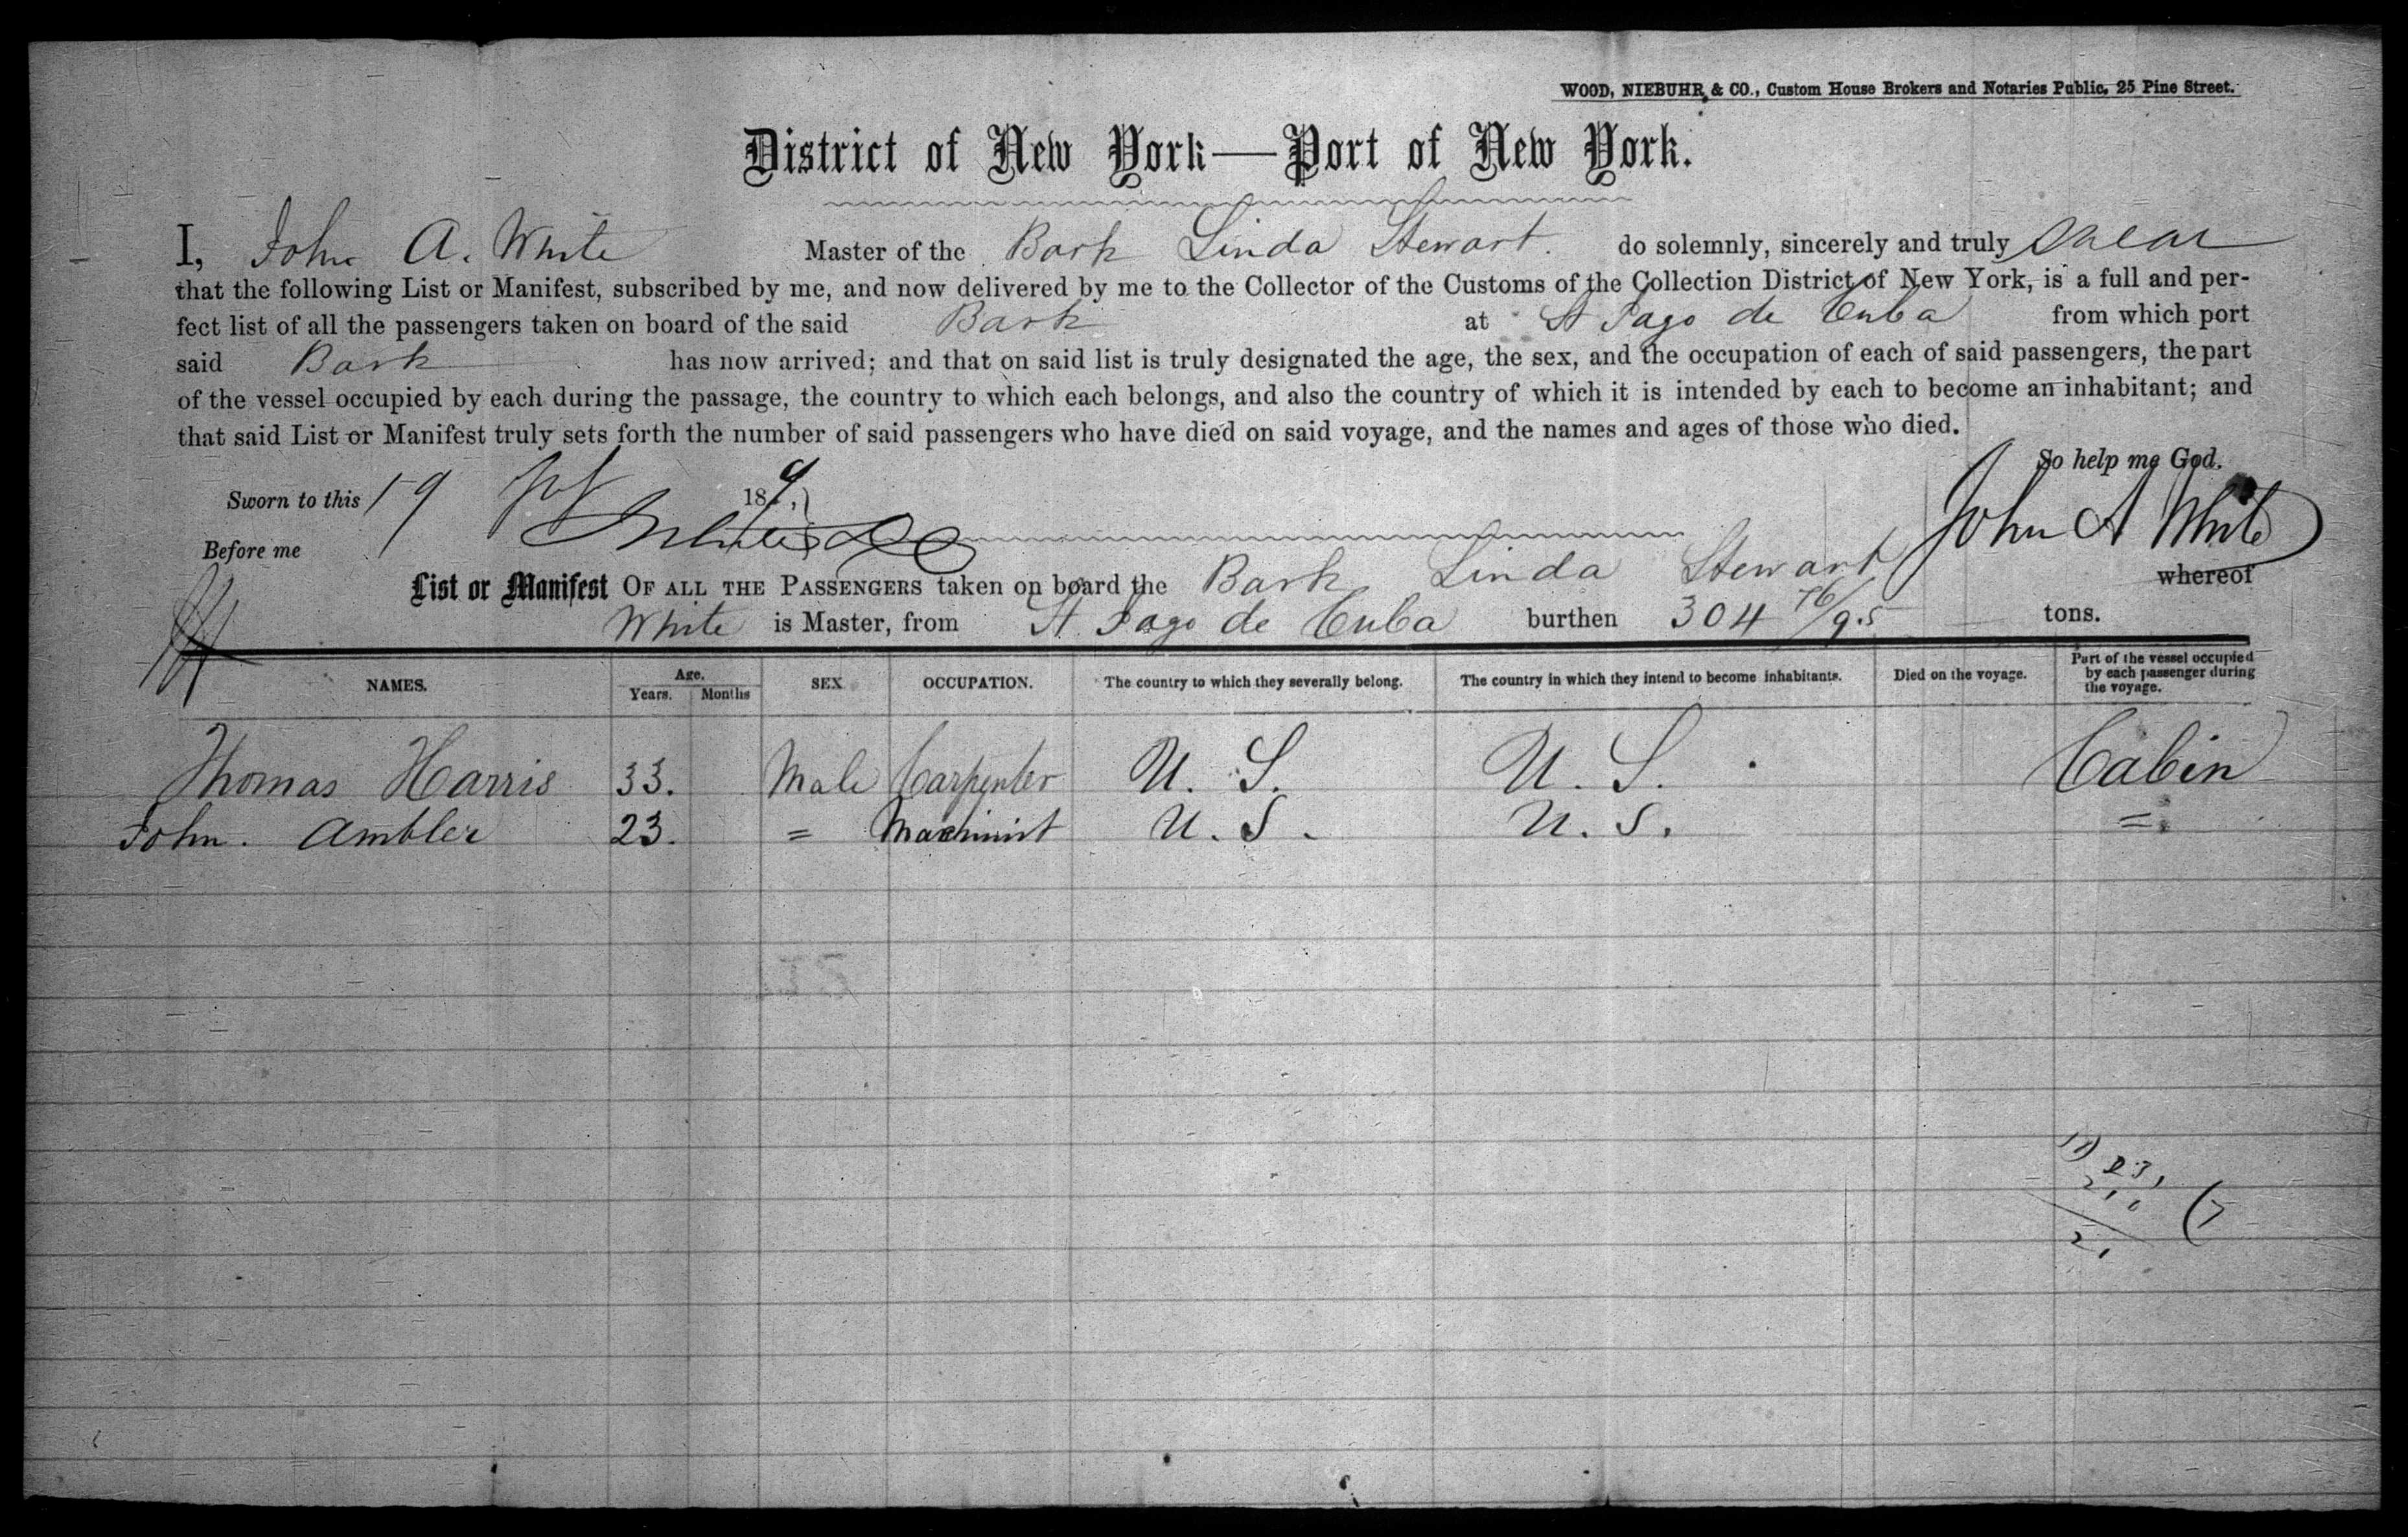 WOOD, NIEBUHR, & CO., Custom House Brokers and Notaries Public, 25 Pine Street.
District of New York—Port of New York.
I, John A. White Master of the Bark Linda Stewart. do solemnly, sincerely and truly swear
that the following List or Manifest, subscribed by me, and now delivered by me to the Collector of the Customs of the Collection District of New York, is a full and per-
fect list of all the passengers taken on board of the said Bark at St Jago de Cuba from which port
said Bark has now arrived; and that on said list is truly designated the age, the sex, and the occupation of each of said passengers, the part
of the vessel occupied by each during the passage, the country to which each belongs, and also the country of which it is intended by each to become an inhabitant; and
that said List or Manifest truly sets forth the number of said passengers who have died on said voyage, and the names and ages of those who died.
So help me God.
Sworn to this 19 18
John A White
Before me
List or Manifest OF ALL THE PASSENGERS taken on board the Bark Linda Stewart whereof
White is Master, from St Jago de Cuba burthen 304 76/95 tons.
NAMES. Age. Years. Months SEX OCCUPATION. The country to which they severally belong. The country in which they intend to become inhabitants. Died on the voyage. Part of the vessel occupied by each passenger during the voyage.
Thomas Harris 33. Male Carpenter U. S. U. S. Cabin
John. Ambler 23. = Machinist U. S. U. S. =